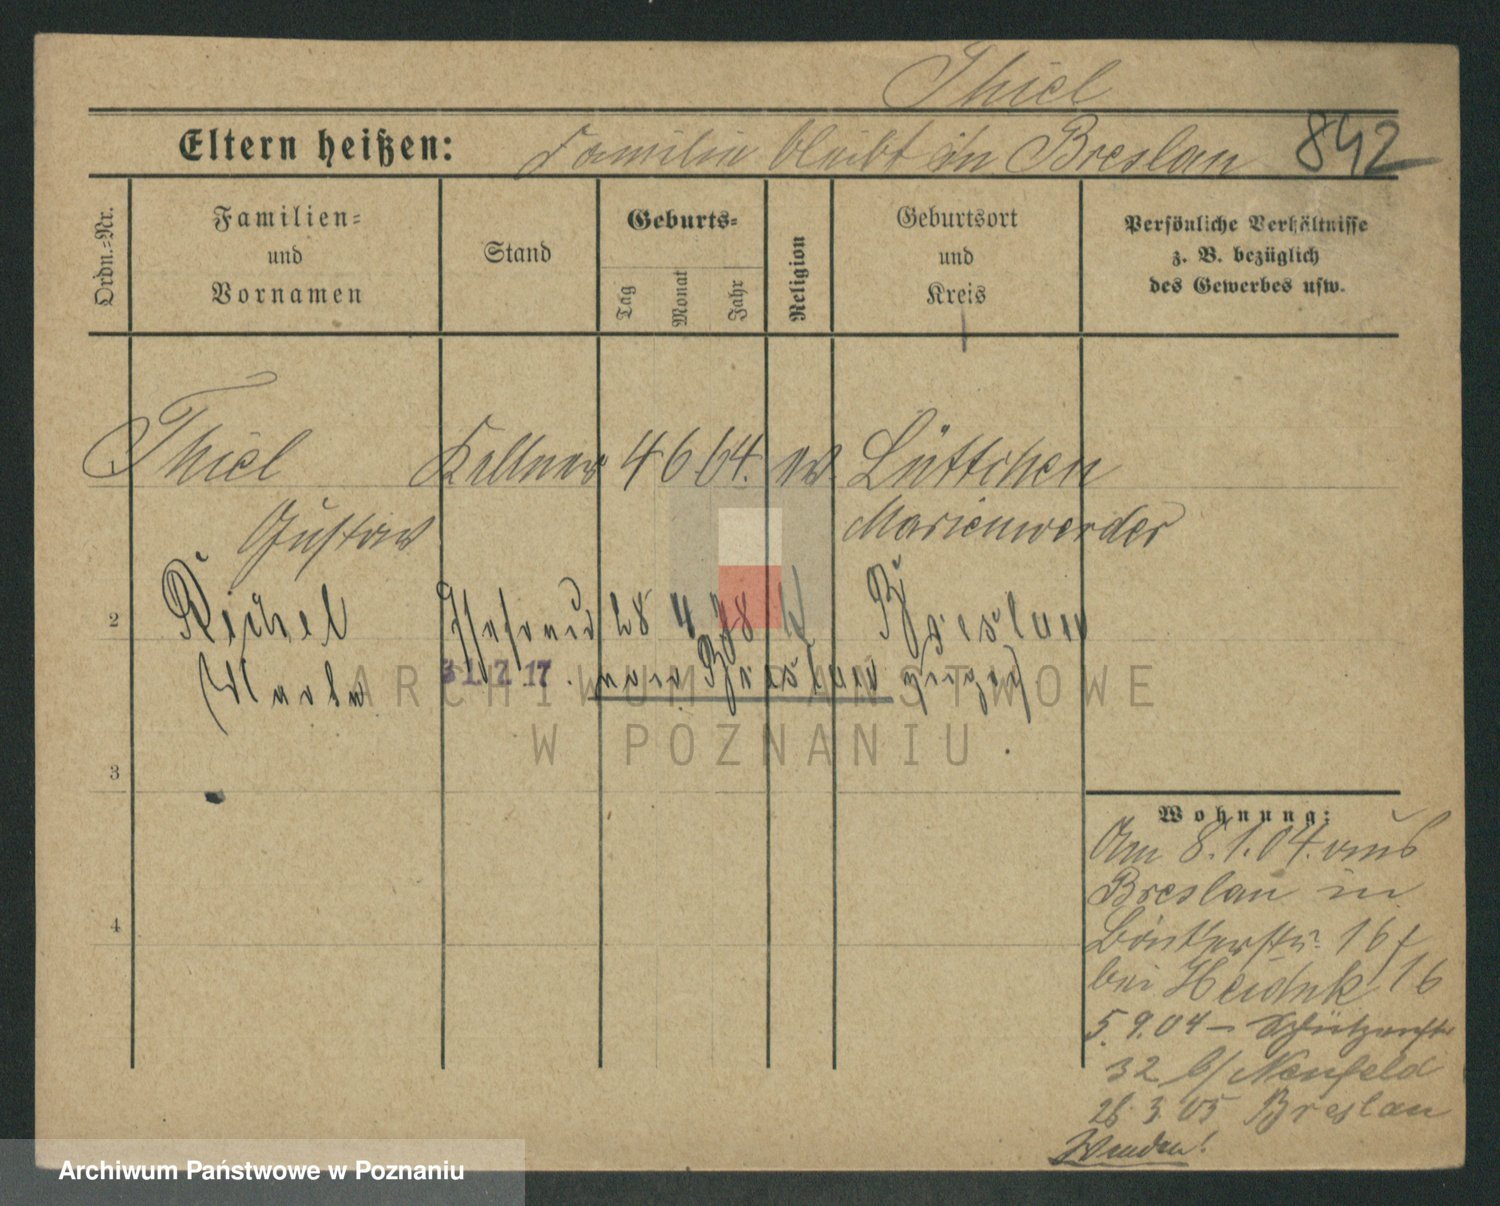 Thiel
Eltern heißen: Familie bleibt in Breslau 842
Ordn.=Nr.
Familien=
und
Vornamen
Stand
Geburts=
Tag
Monat
Jahr
Religion
Geburtsort
und
Kreis
Persönliche Verhältnisse
z. B. bezüglich
des Gewerbes usw.
Thiel Kellner 4 6 64. ev. Lüttchen
Gustav Marienwerder
2 Reichel Ehefrau 28 4 78 k Breslau
31.7.17. nach Breslau
3
4
Wohnung:
Am 8.1.04. aus
Breslau in
16
bei Heiduk 16
5.9.04 – Schützenstr
32 b/ Neufeld
28.3.05 Breslau
Wenden!
ARCHIWUM PAŃSTWOWE
W POZNANIU
Archiwum Państwowe w Poznaniu